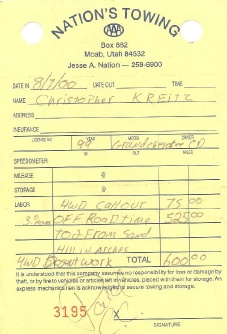 NATION'S TOWING
AAA
Box 862
Moab, Utah 84532
Jesse A. Nation — 259-6900
DATE IN 8/7/00 DATE OUT TIME
NAME Christopher KREITZ
ADDRESS
INSURANCE
LICENSE NO. YEAR MODEL
99 Grand cherokee
IN OUT MILES
SPEEDOMETER
MILEAGE @
STORAGE @
LABOR 4WD Callout 75 00
OFF Road time 525 00
From Sand
Hill in Arches
4WD Desert work TOTAL 600 00
It is understood that this company assumes no responsibility for loss or damage by
theft, or by fire to vehicles or articles left in vehicles, placed with them for storage. An
express mechanics lien is acknowledged to secure towing and storage.
3195 X
SIGNATURE